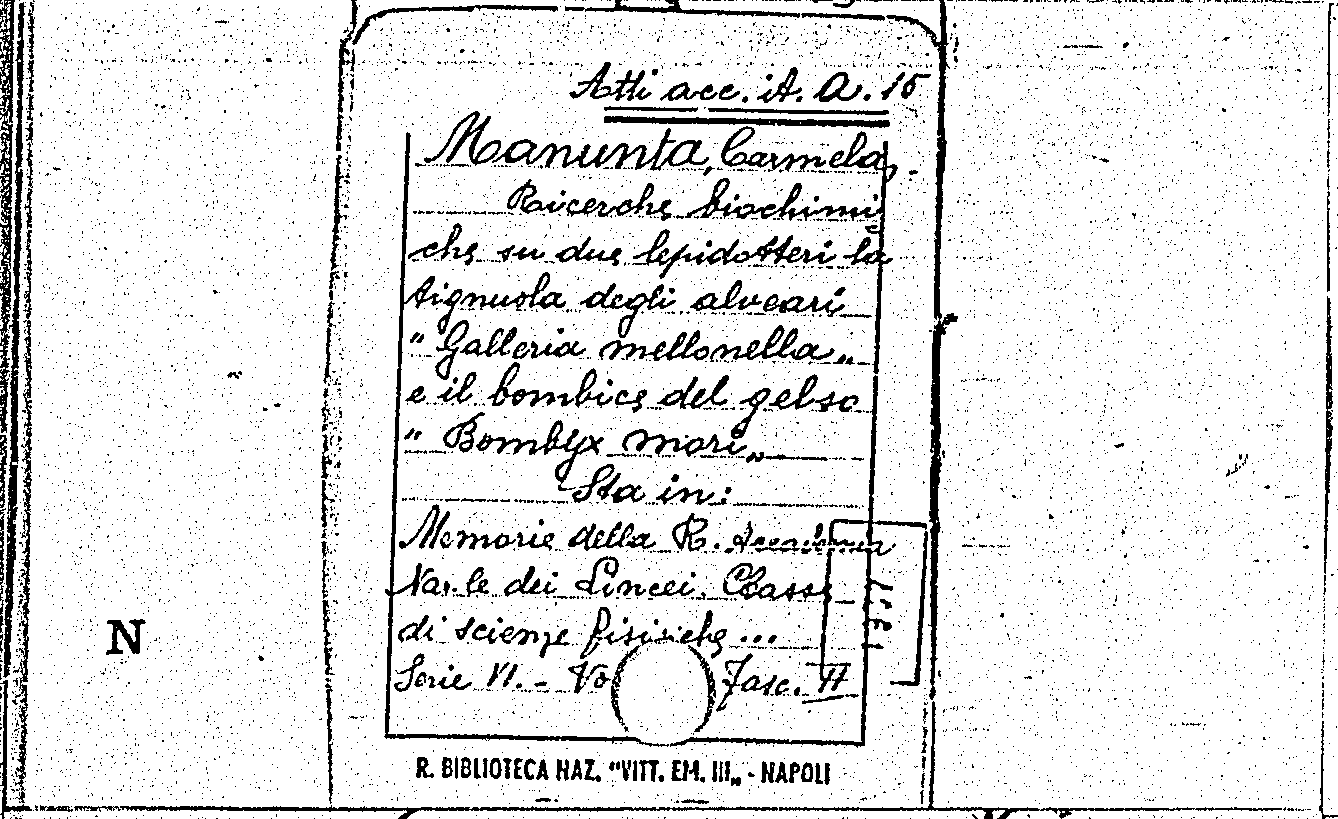 Atti acc. it. A. 15
Manunta, Carmela,
Ricerche biochimi
che su due lepidotteri la
tignuola degli alveari
"Galleria mellonella„
e il bombice del gelso
"Bombyx mori„
Sta in:
Memorie della R. Accademia
Naz.le dei Lincei. Classe
di scienze fisiche ...
Serie VI. - Vo Fasc. II
N
R. BIBLIOTECA NAZ. "VITT. EM. III„ - NAPOLI